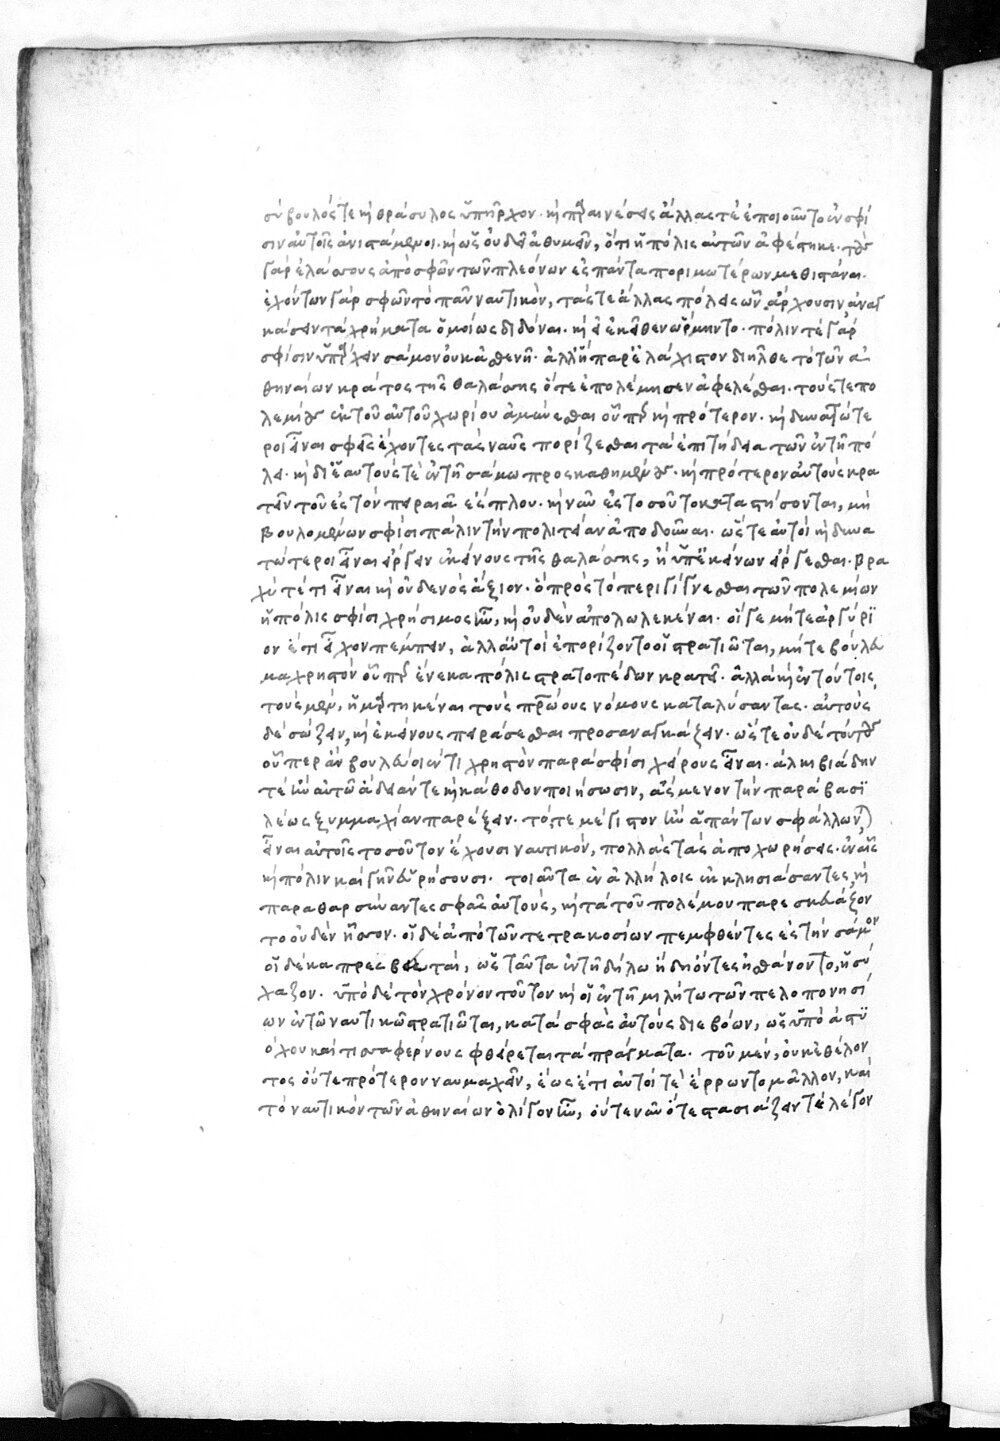 σύβουλός τε καὶ θράσυλος ὑπῆρχον. καὶ παραινέσεις ἄλλας τὲ ἐποιοῦντο ἐν σφί
σιν αὐτοῖς ἀνιστάμενοι. καὶ ὡς οὐ δεῖ ἀθυμεῖν, ὅτι ἡ πόλις αὐτῶν ἀφέστηκε. τοὺς
γὰρ ἐλάσσους ἀπὸ σφῶν τῶν πλεόνων ἐς πάντα ποριμωτέρων μεθιστάναι.
ἐχόντων γὰρ σφῶν τὸ πᾶν ναυτικὸν, τάς τε ἄλλας πόλεις ὧν ἄρχουσιν, ἀναγ
κάσειν τὰ χρήματα ὁμοίως διδόναι. καὶ εἰ ἐκεῖθεν ὡρμηντο. πόλιν τὲ γὰρ
σφίσιν ὑπάρχειν σάμον οὐκ ἀσθενῆ. ἀλλ' ἣ παρ' ἐλάχιστον δὴ ἦλθε τὸ τῶν ἀ
θηναίων κράτος τῆς θαλάσσης ὅτε ἐπολέμησεν ἀφελέσθαι. τούς τε πο
λεμίους ἐκ τοῦ αὐτοῦ χωρίου ἀμύνεσθαι οὗπερ καὶ πρότερον. καὶ δυνατώτε
ροι εἶναι σφεῖς ἔχοντες τὰς ναῦς πορίζεσθαι τὰ ἐπιτήδεια τῶν ἐν τῆ πό
λει. καὶ δι' ἑαυτούς τὲ ἐν τῆ σάμω προσκαθημένους. καὶ πρότερον αὐτοὺς κρα
τεῖν τοῦ ἐς τὸν πειραιᾶ ἐσπλου. καὶ νῦν ἐς τοσοῦτον καταστήσονται, μὴ
βουλομένων σφίσι πάλιν τὴν πολιτείαν ἀποδοῦναι. ὥστε αὐτοὶ καὶ δυνα
τώτεροι εἶναι εἴργειν ἐκείνους τῆς θαλάσσης, ἢ ὑπ' ἐκείνων εἴργεσθαι. βρα
χύ τέ τι εἶναι καὶ οὐδενὸς ἄξιον. ὃ πρὸς τὸ περιγίγνεσθαι τῶν πολεμίων
ἡ πόλις σφίσι χρήσιμος ἦν, καὶ οὐδὲν ἀπολωλεκέναι. οἵ γε μήτε ἀργύρι
ον ἔτι εἶχον πέμπειν, ἀλλ' αὐτοὶ ἐπορίζοντο οἱ στρατιῶται, μήτε βούλευ
μα χρηστὸν οὗπερ ἕνεκα πόλις στρατοπέδων κρατεῖ. ἀλλὰ καὶ ἐν τούτοις
τοὺς μὲν, ἡμαρτηκέναι τοὺς πατρώους νόμους καταλύσαντας. αὐτοὺς
δὲ σώζειν, καὶ ἐκείνους πειράσεσθαι προσαναγκάζειν. ὥστε οὐδὲ τούτους
οἵπερ ἂν βουλεύοιέν τι χρηστὸν παρὰ σφίσι χείρους εἶναι. ἀλκιβιάδην
τὲ ἢν αὐτῶ ἄδειάν τε καὶ κάθοδον ποιήσωσιν, ἄσμενον τὴν παρὰ βασι
λέως ξυμμαχίαν παρέξειν. τό, τε μέγιστον ἢν ἁπάντων σφάλλωνται,
εἶναι αὐτοῖς τοσοῦτον ἔχουσι ναυτικὸν, πολλὰς τὰς ἀποχωρήσεις. ἐν αἷς
καὶ πόλιν καὶ γῆν εὑρήσουσι. τοιαῦτα ἐν ἀλλήλοις ἐκκλησιάσαντες, καὶ
παραθαρσύναντες σφᾶς αὐτοὺς, καὶ τὰ τοῦ πολέμου παρεσκευάζον
το οὐδὲν ἧσσον. οἱ δὲ ἀπὸ τῶν τετρακοσίων πεμφθέντες ἐς τὴν σάμον
οἱ δέκα πρεσβευταὶ, ὡς ταῦτα ἐν τῆ δήλω ἤδη ὄντες ἠσθάνοντο, ἡσύ
χαζον. ὑπὸ δὲ τὸν χρόνον τοῦτον καὶ οἱ ἐν τῆ μιλήτω τῶν πελοπονησί
ων ἐν τῶ ναυτικῶ στρατιῶται, κατὰ σφᾶς αὐτοὺς διεβόων, ὡς ὑπὸ ἀστυ
όχου καὶ τισσαφέρνους φθείρεται τὰ πράγματα. τοῦ μὲν, οὐκ ἐθέλον
τος οὔτε πρότερον ναυμαχεῖν, ἕως ἔτι αὐτοί τὲ ἔρρωντο μᾶλλον, καὶ
τὸ ναυτικὸν τῶν ἀθηναίων ὀλίγον ἦν, οὔτε νῦν ὅτε στασιάζειν τὲ λέγον